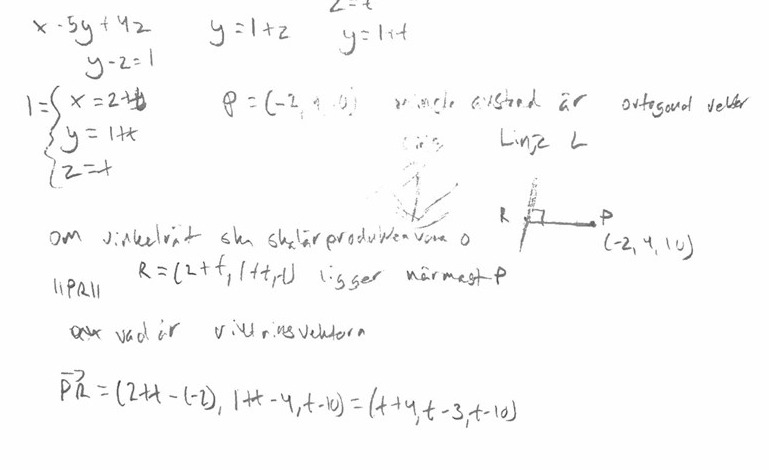 z=t
x-5y+4z y=1+z y=1+t
y-z=1
l={ x=2+t P=(-2, 4, 10) avstånd är ortogonal vektor
y=1+t Linje L
z=t
R P
(-2, 4, 10)
om vinkelrät ska skalärprodukten vara 0
||PR|| R=(2+t, 1+t, t) ligger närmast P
vad är riktningsvektorn
PR = (2+t-(-2), 1+t-4, t-10) = (t+4, t-3, t-10)